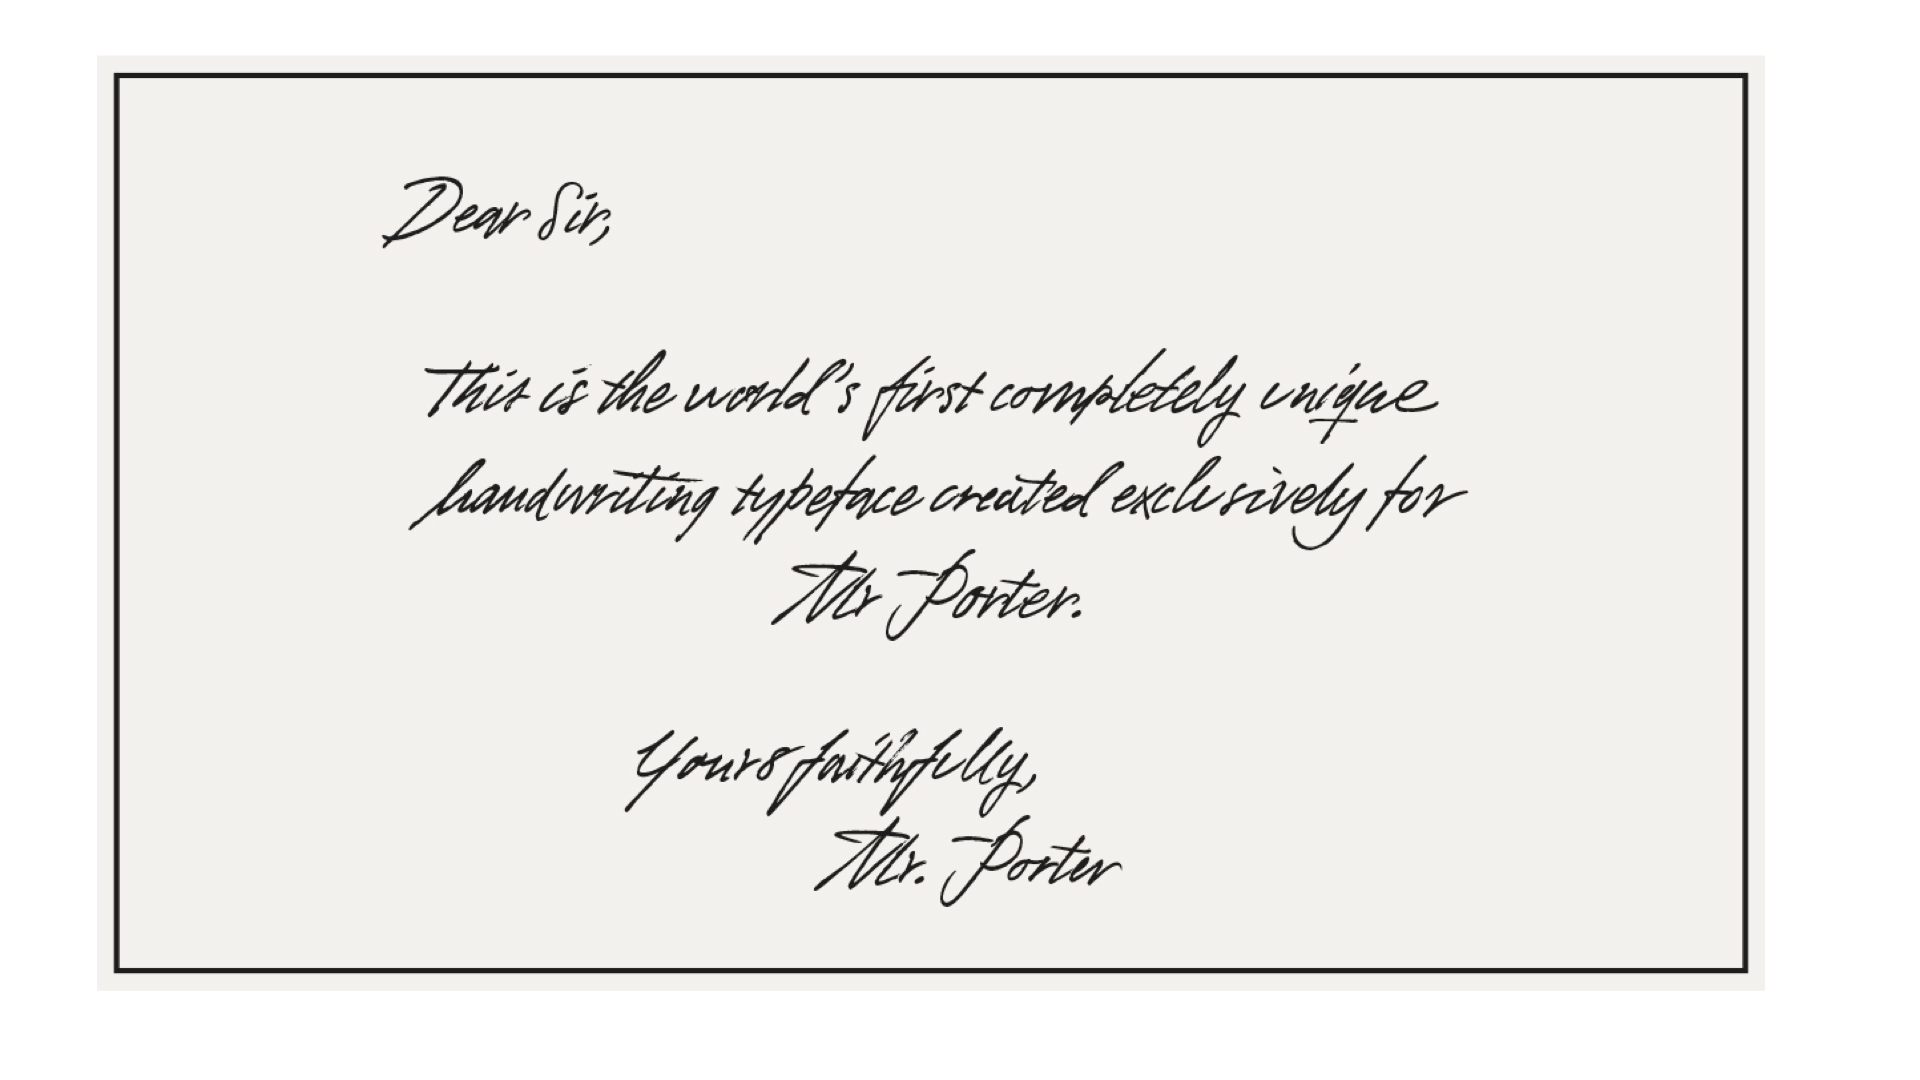 Dear Sir,
This is the world's first completely unique
handwriting typeface created exclusively for
Mr Porter.
Yours faithfully,
Mr. Porter